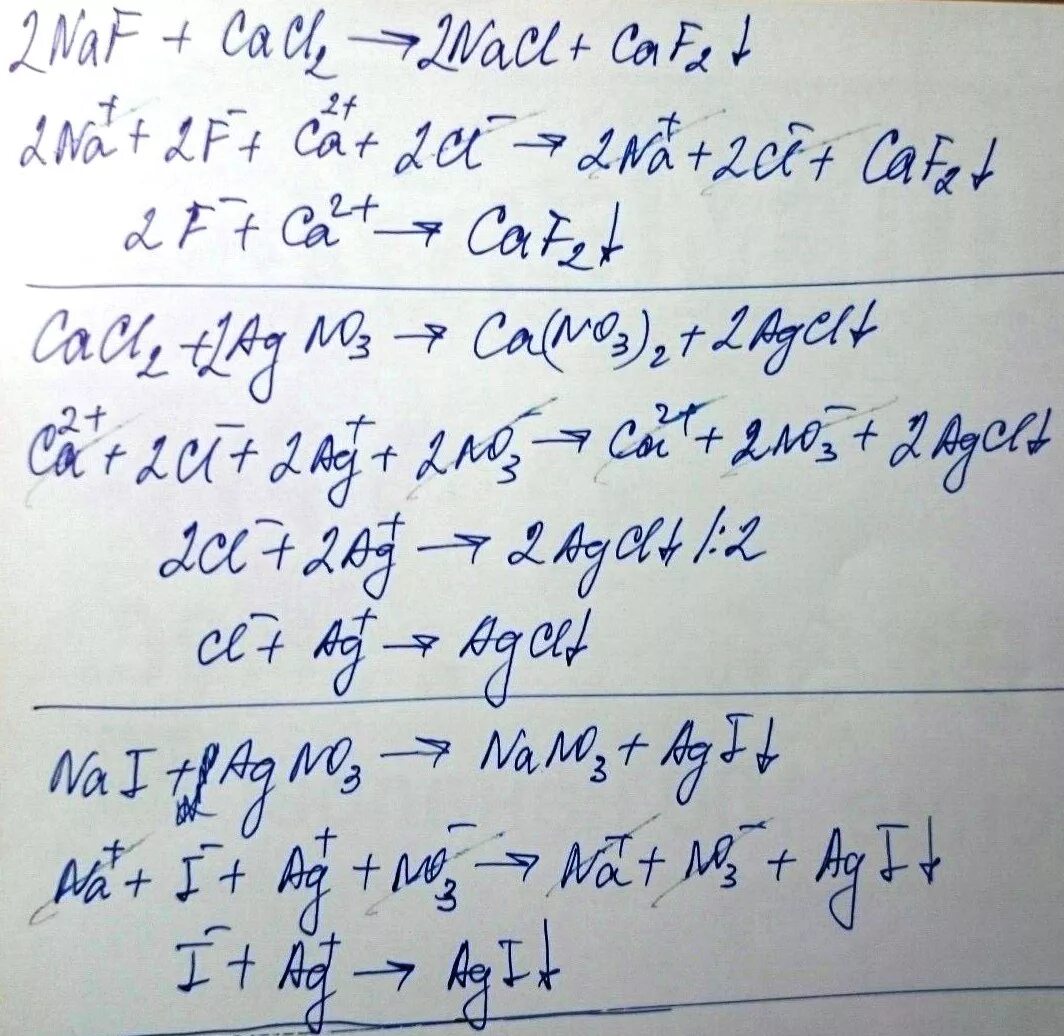 2NaF + CaCl₂ → 2NaCl + CaF₂↓
2Na⁺ + 2F⁻ + Ca²⁺ + 2Cl⁻ → 2Na⁺ + 2Cl⁻ + CaF₂↓
2F⁻ + Ca²⁺ → CaF₂↓
CaCl₂ + 2AgNO₃ → Ca(NO₃)₂ + 2AgCl↓
Ca²⁺ + 2Cl⁻ + 2Ag⁺ + 2NO₃⁻ → Ca²⁺ + 2NO₃⁻ + 2AgCl↓
2Cl⁻ + 2Ag⁺ → 2AgCl↓ |:2
Cl⁻ + Ag⁺ → AgCl↓
NaI + AgNO₃ → NaNO₃ + AgI↓
Na⁺ + I⁻ + Ag⁺ + NO₃⁻ → Na⁺ + NO₃⁻ + AgI↓
I⁻ + Ag⁺ → AgI↓